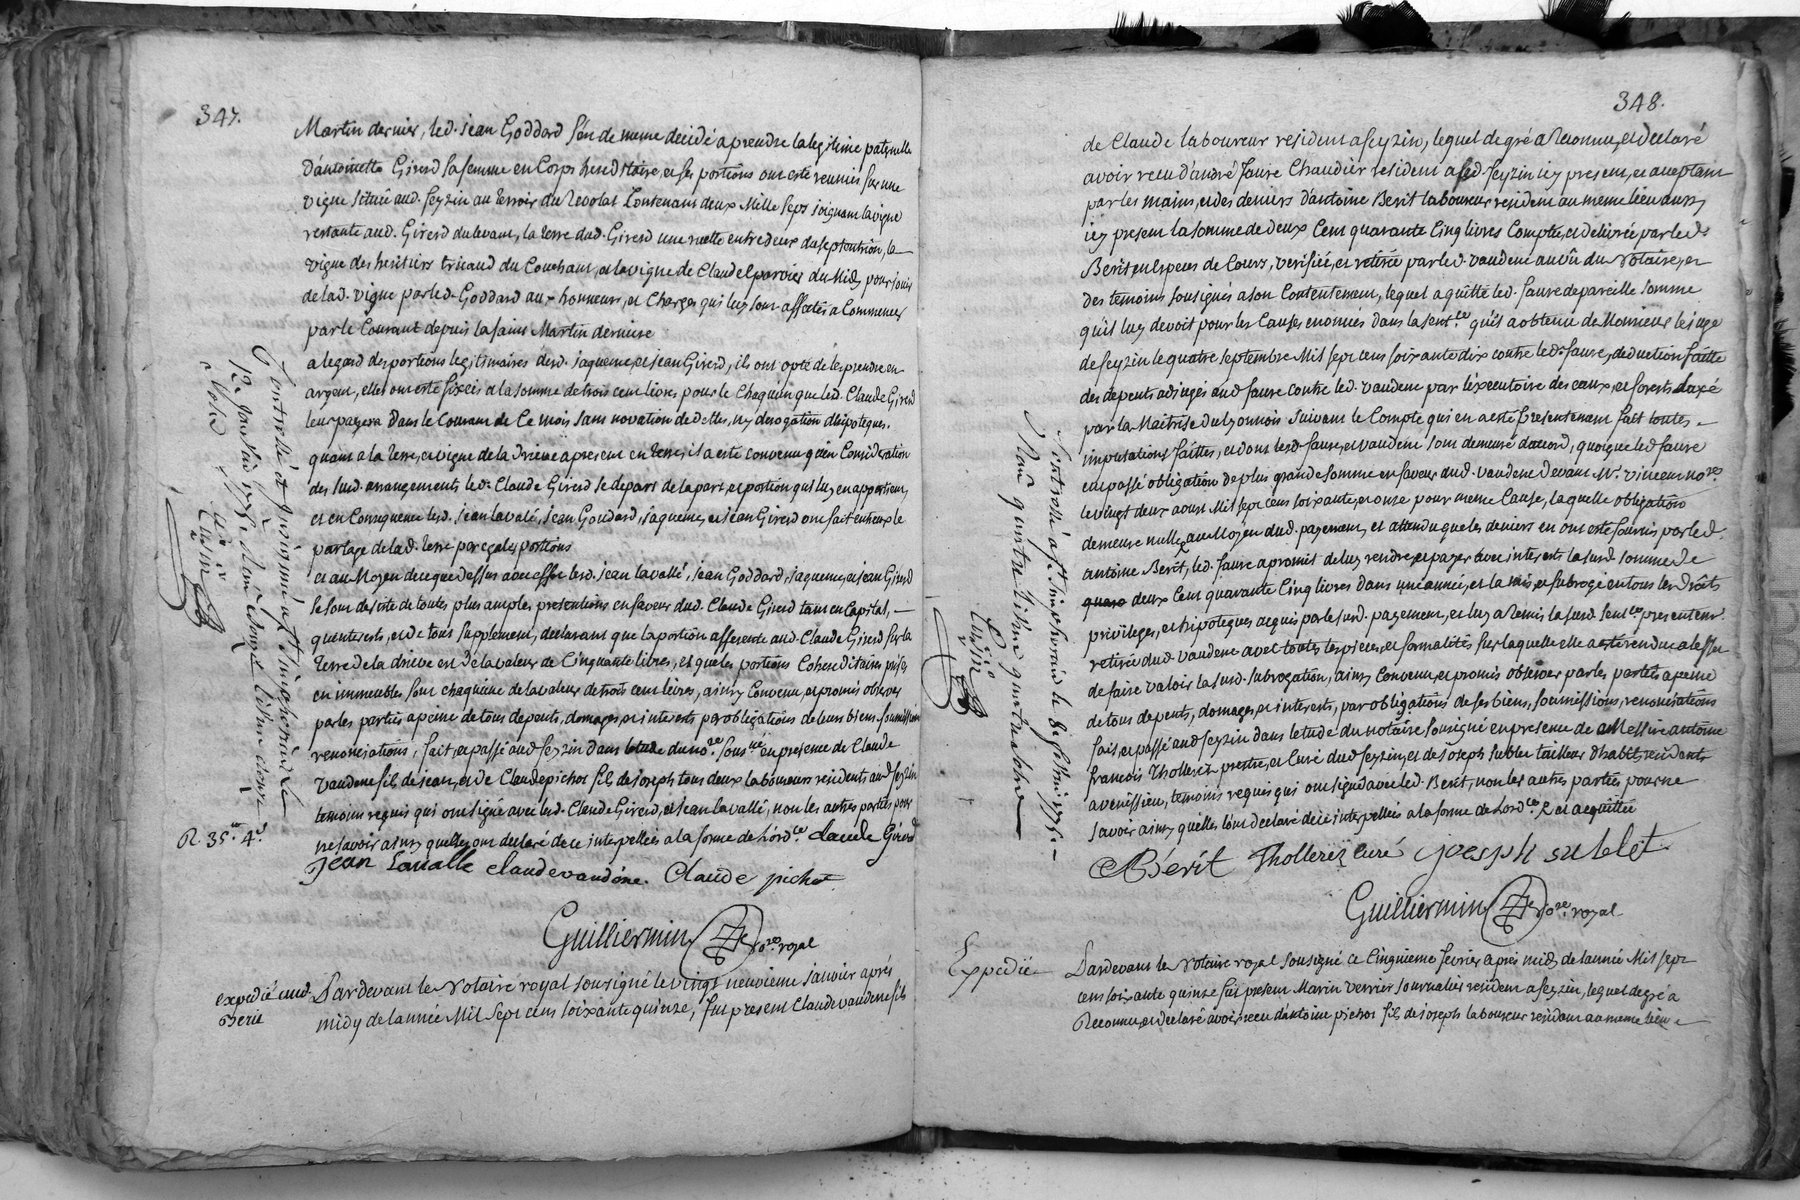 347.
Martin dernier, led. jean Goddard s'en de meme decidé a prendre la legitime paternelle
d'antoinette Girerd sa femme en Corps hereditaire, et ses portions ont esté reunies sur une
vigne située aud. feyzin au terroir du Revolat Contenant deux Mille seps joignant la vigne
restante aud. Girerd du levant, la terre dud. Girerd une ruelle entre deux du septentrion, la
vigne des heritiers tricaud du Couchant, et la vigne de Claude du Midy pour jouir
de lad. vigne par led. Goddard aux honneurs, et Charges qui luy sont affectés a Commencer
par le Courant depuis la saint Martin derniere
a legard des portions legitimaires desd. jaqueme, et jean Girerd, ils ont opté de les prendre en
argent, elles ont esté fixées a la somme de trois cent livres pour le Chaquun que led. Claude Girerd
leur payera dans le Courant de Ce mois sans novation de dettes, ny derogation d'hipoteques.
quant a la terre, et vigne de la drieve a present en terre, il a esté convenu qu'en Consideration
des sud. arrangements led. Claude Girerd se depart de la part, et portion qui luy en appartient,
et en Consequence lesd. jean lavalé, jean Goddard, jaqueme, et jean Girerd ont fait entreux le
partage de lad. terre par egales portions
et au Moyen de ce que dessus lesd. jean lavallé, jean Goddard, jaqueme, et jean Girerd
se sont desisté de toutes plus amples pretentions en faveur dud. Claude Girerd tant en Capital,
qu'interests, et de tous supplement, declarant que la portion afferente aud. Claude Girerd sur la
terre de la drieve est de la valeur de Cinquante livres, et que les portions Cohereditaires prises
en immeubles sont chaquune de la valeur de trois cent livres, ainsy Convenu, et promis observer
par les parties a peine de tous depents, domages, et interests par obligations de leurs biens soumissions
renonciations, fait, et passé aud. feyzin dans letude du no.re sous.né en presence de Claude
vaudene fils de jean, et de Claude pichot fils de joseph tous deux laboureurs residents aud. feyzin
temoins requis qui ont signé avec lesd. Claude Girerd, et jean lavallé, non les autres parties pour
ne savoir ainsy quelles ont declaré de ce interpellées a la forme de l'ord.ce claude Girerd
jean Lavalle claude vaudéne. Claude pichot
Guilliermin No.re royal
R. 35.s 4.d
Contrellé et
12 janvier 1775
Cusin
expedié aud. Berit
Pardevant le Notaire royal sousigné le vingt neuvieme janvier aprés
midy de lannée Mil sept cens soixante quinze, fut present Claude vaudene fils
348.
de Claude laboureur resident a feyzin, lequel de gré a Reconnu, et declaré
avoir recu d'andré faure Chaudier resident a sed. feyzin icy present, et acceptant
par les mains, et des deniers d'antoine Berit laboureur resident au meme lieu aussy
icy present la somme de deux Cent quarante Cinq livres Comptée, et delivrée par led.
Berit en especes de Cours, verifiée, et retirée par led. vaudene au vû du Notaire, et
des temoins sousignés a son Contentement, lequel a quitté led. faure de pareille somme
qu'il luy devoit pour les Causes enoncées dans la sent.ce qu'il a obtenu de Monsieur le juge
de feyzin le quatre septembre Mil sept cens soixante dix contre led. faure, deduction faitte
des depents adjugés aud. faure contre led. vaudene par l'executoire des eaux, et forests taxé
par la Maitrise du lyonnois suivant le Compte qui en a esté presentement fait toutes
imputations faittes, et dont lesd. faure, et vaudene sont demeuré daccord, quoique led. faure
eut passé obligation de plus grande somme en faveur dud. vaudene devant M.e vincent no.re
le vingt deux aoust Mil sept cens soixante, et onze pour meme Cause, laquelle obligation
demeure nulle, au Moyen dud. payement, et attendu que les deniers en ont esté fournis par led.
antoine Berit, led. faure a promit de luy rendre, et payer avec interest la sud. somme de
deux Cent quarante Cinq livres dans une année, et la mis, et subrogé en tous les droits
privileges, et hipoteques acquis par le sud. payement, et luy a remis la susd. sent.ce presentem.t
retirée dud. vaudene avec toutes les pieces, et formalités sur laquelle elle a esté rendue a leffet
de faire valoir la sud. subrogation, ainsy Convenu, et promis observer par les parties a peine
de tous depents, domages, et interests, par obligations de ses biens, soumissions, renonciations
fait, et passé aud. feyzin dans letude du notaire sousigné en presence de Messire antoine
francois Tholleriz prestre, et Curé dud. feyzin, et de joseph sublet tailleur d'habits residents
a venissieu, temoins requis qui ont signé avec led. Berit, non les autres parties pour ne
savoir ainsy qu'elles l'ont declaré de ce interpellées a la forme de Lord.ce
Berit Tholleriz Curé joesph sublet
Guilliermin No.re royal
Cusin
Expedié
Pardevant le Notaire royal sousigné ce Cinquieme fevrier aprés midy de lannée Mil sept
cens soixante quinze fut present Marin verrier journalier resident a feyzin, lequel de gré a
Reconnu, et declaré avoir recu d'antoine pichot fils de joseph laboureur resident au meme lieu